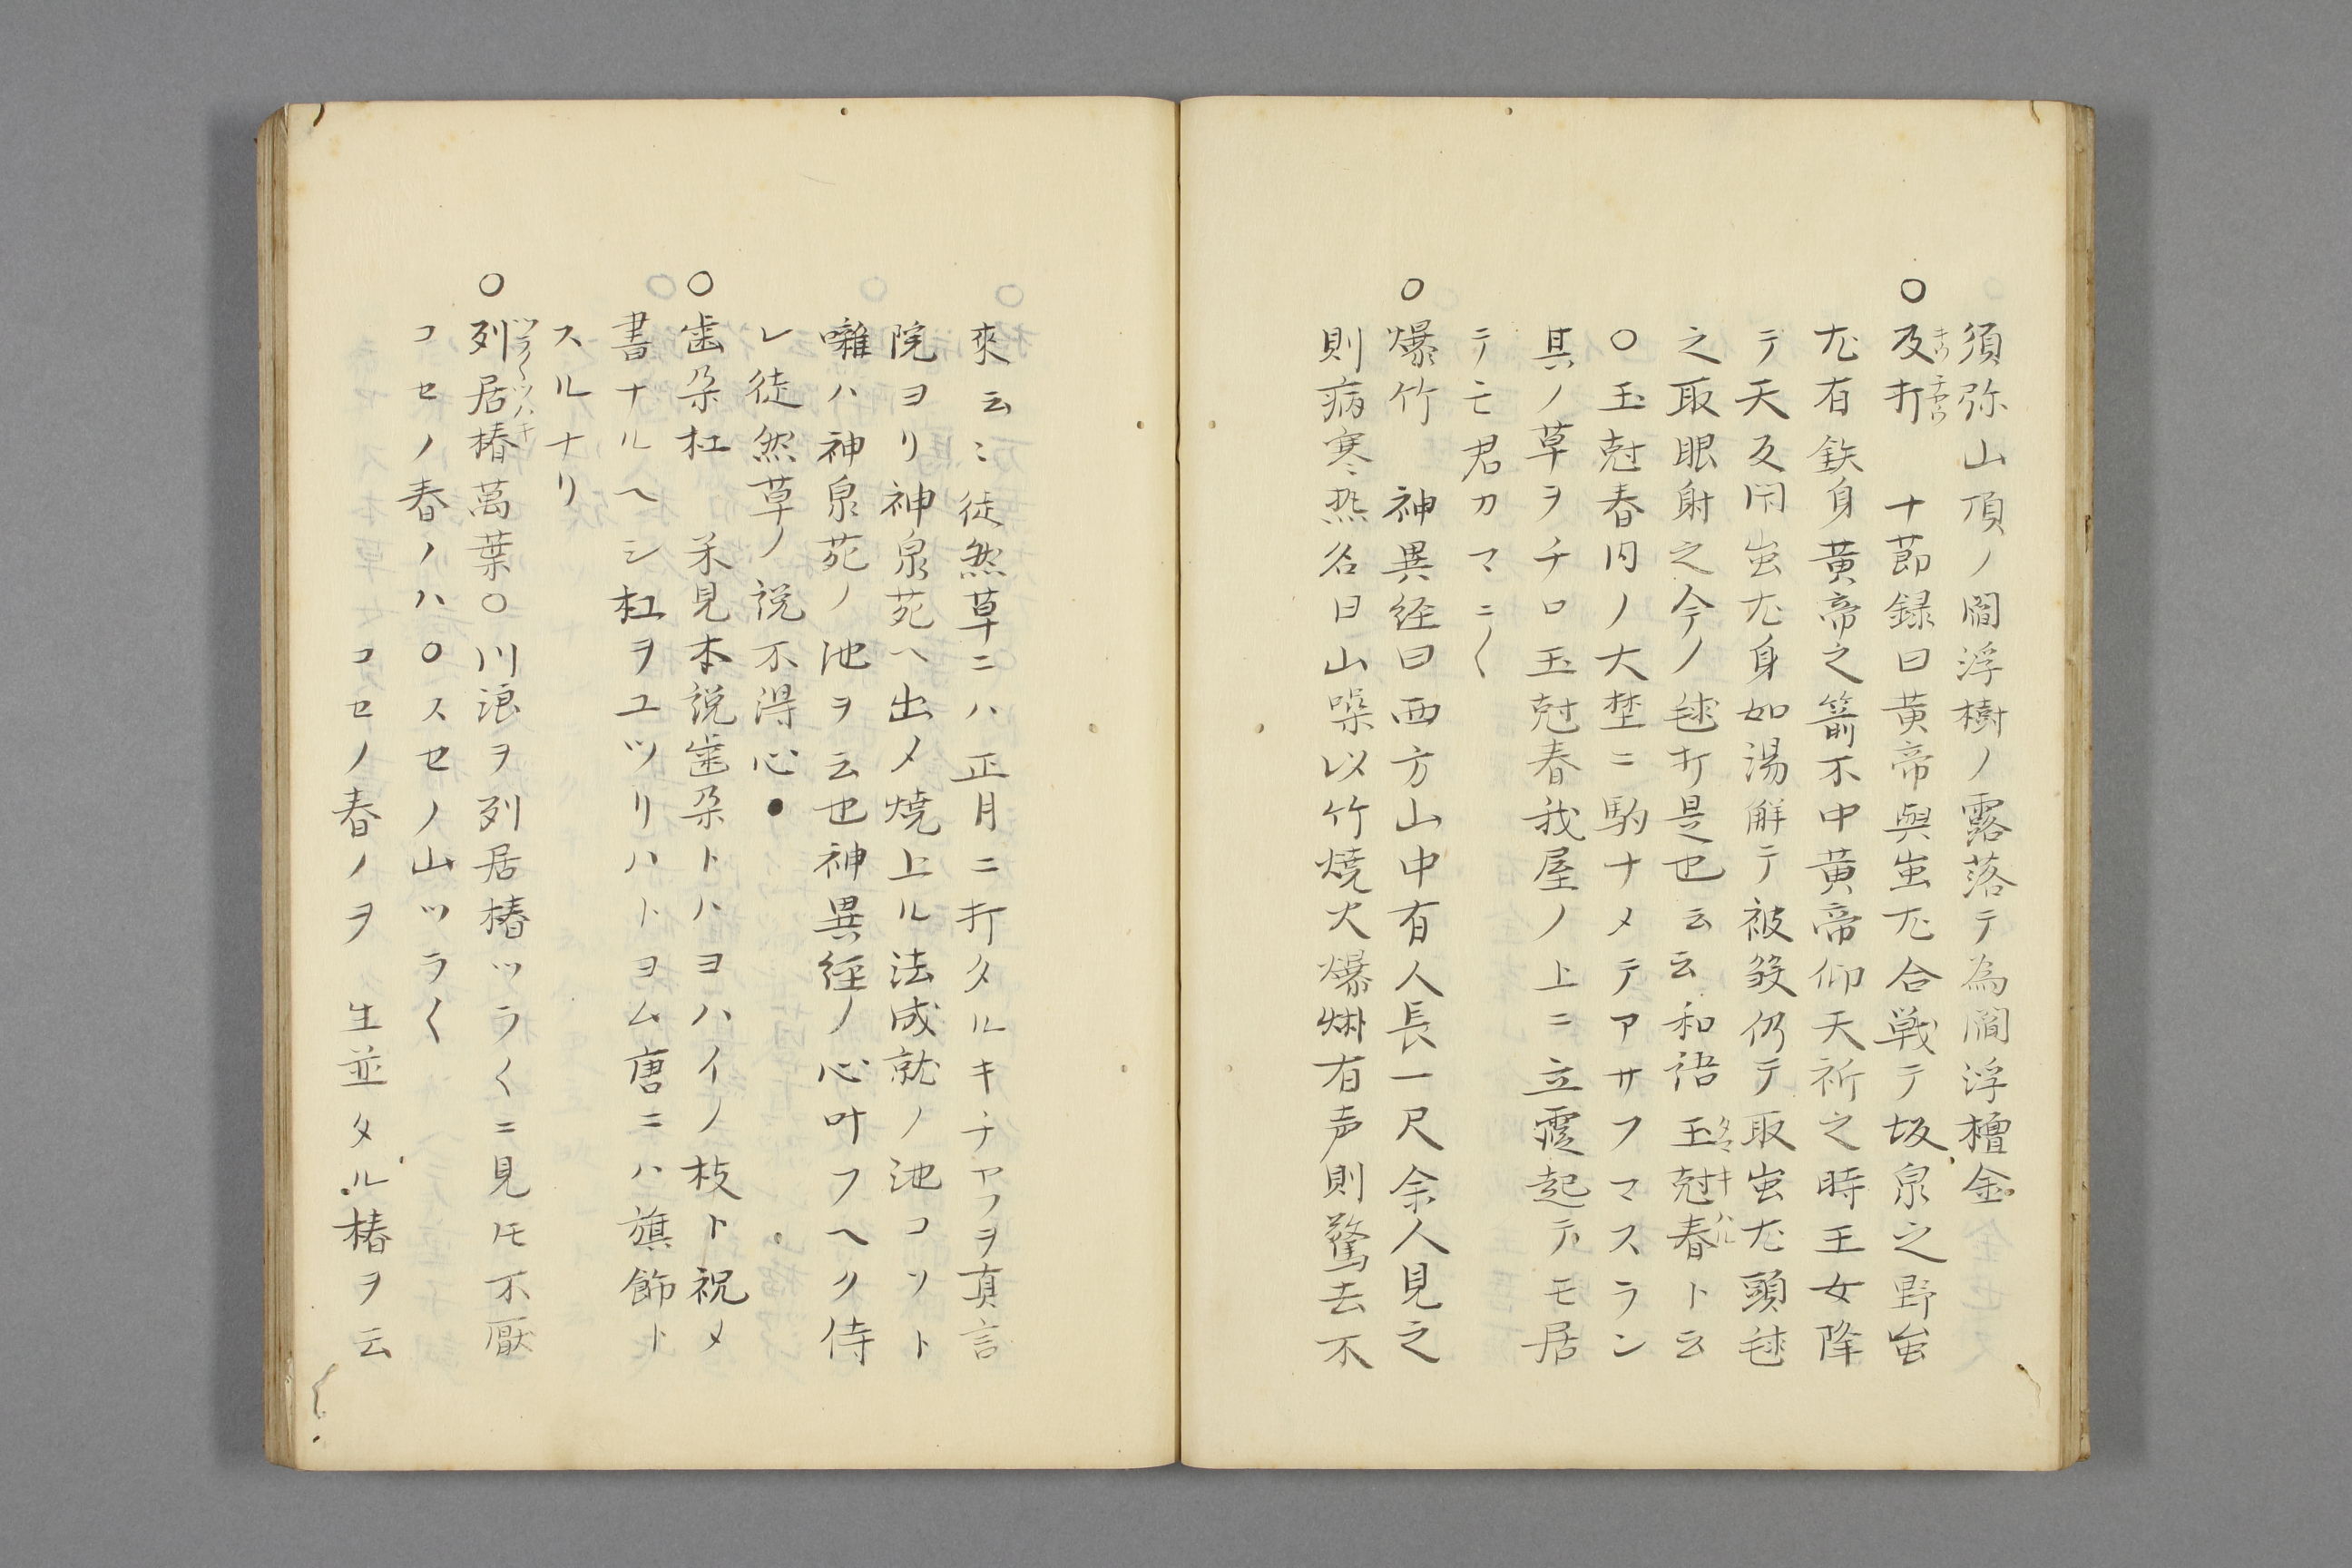 須弥山頂ノ閻浮樹ノ露落テ為閻浮檀金
○及打 十節録曰黄帝與蚩尤合戦テ坂泉之野蚩
尤有鉄身黄帝之箭不中黄帝仰天祈之時玉女降
テ天反閇蚩尤身如湯解テ被殺仍テ取蚩尤頭毬
之取眼射之今ノ毬打是也云云和語玉尅春ト云
○玉尅春内ノ大埜ニ駒ナメテアサフマスラン
其ノ草ヲチロ玉尅春我屋ノ上ニ立霞起テモ居
テモ君カマニ〱
○爆竹 神異経曰西方山中有人長一尺余人見之
則病寒熱名曰山𮐃以竹焼火爆烞有声則驚去不
來云〻徒然草ニハ正月ニ打タルキチヤフヲ真言
院ヨリ神泉苑ヘ出メ焼上ル法成就ノ池コソト
囃ハ神泉苑ノ池ヲ云也神異經ノ心叶フヘク侍
レ徒然草ノ説不得心●
○歯朶杠 未見本説歯朶トハヨハイノ枝ト祝メ
書ナルヘシ杠ヲユツリハトヨム唐ニハ旗飾ト
スルナリ
○列居椿萬葉○川浪ヲ列居椿ツラ〱ニ見𪜈不厭
コセノ春ノハ○スセノ山ツラ〱
コセノ春ノヲ 生並タル椿ヲ云